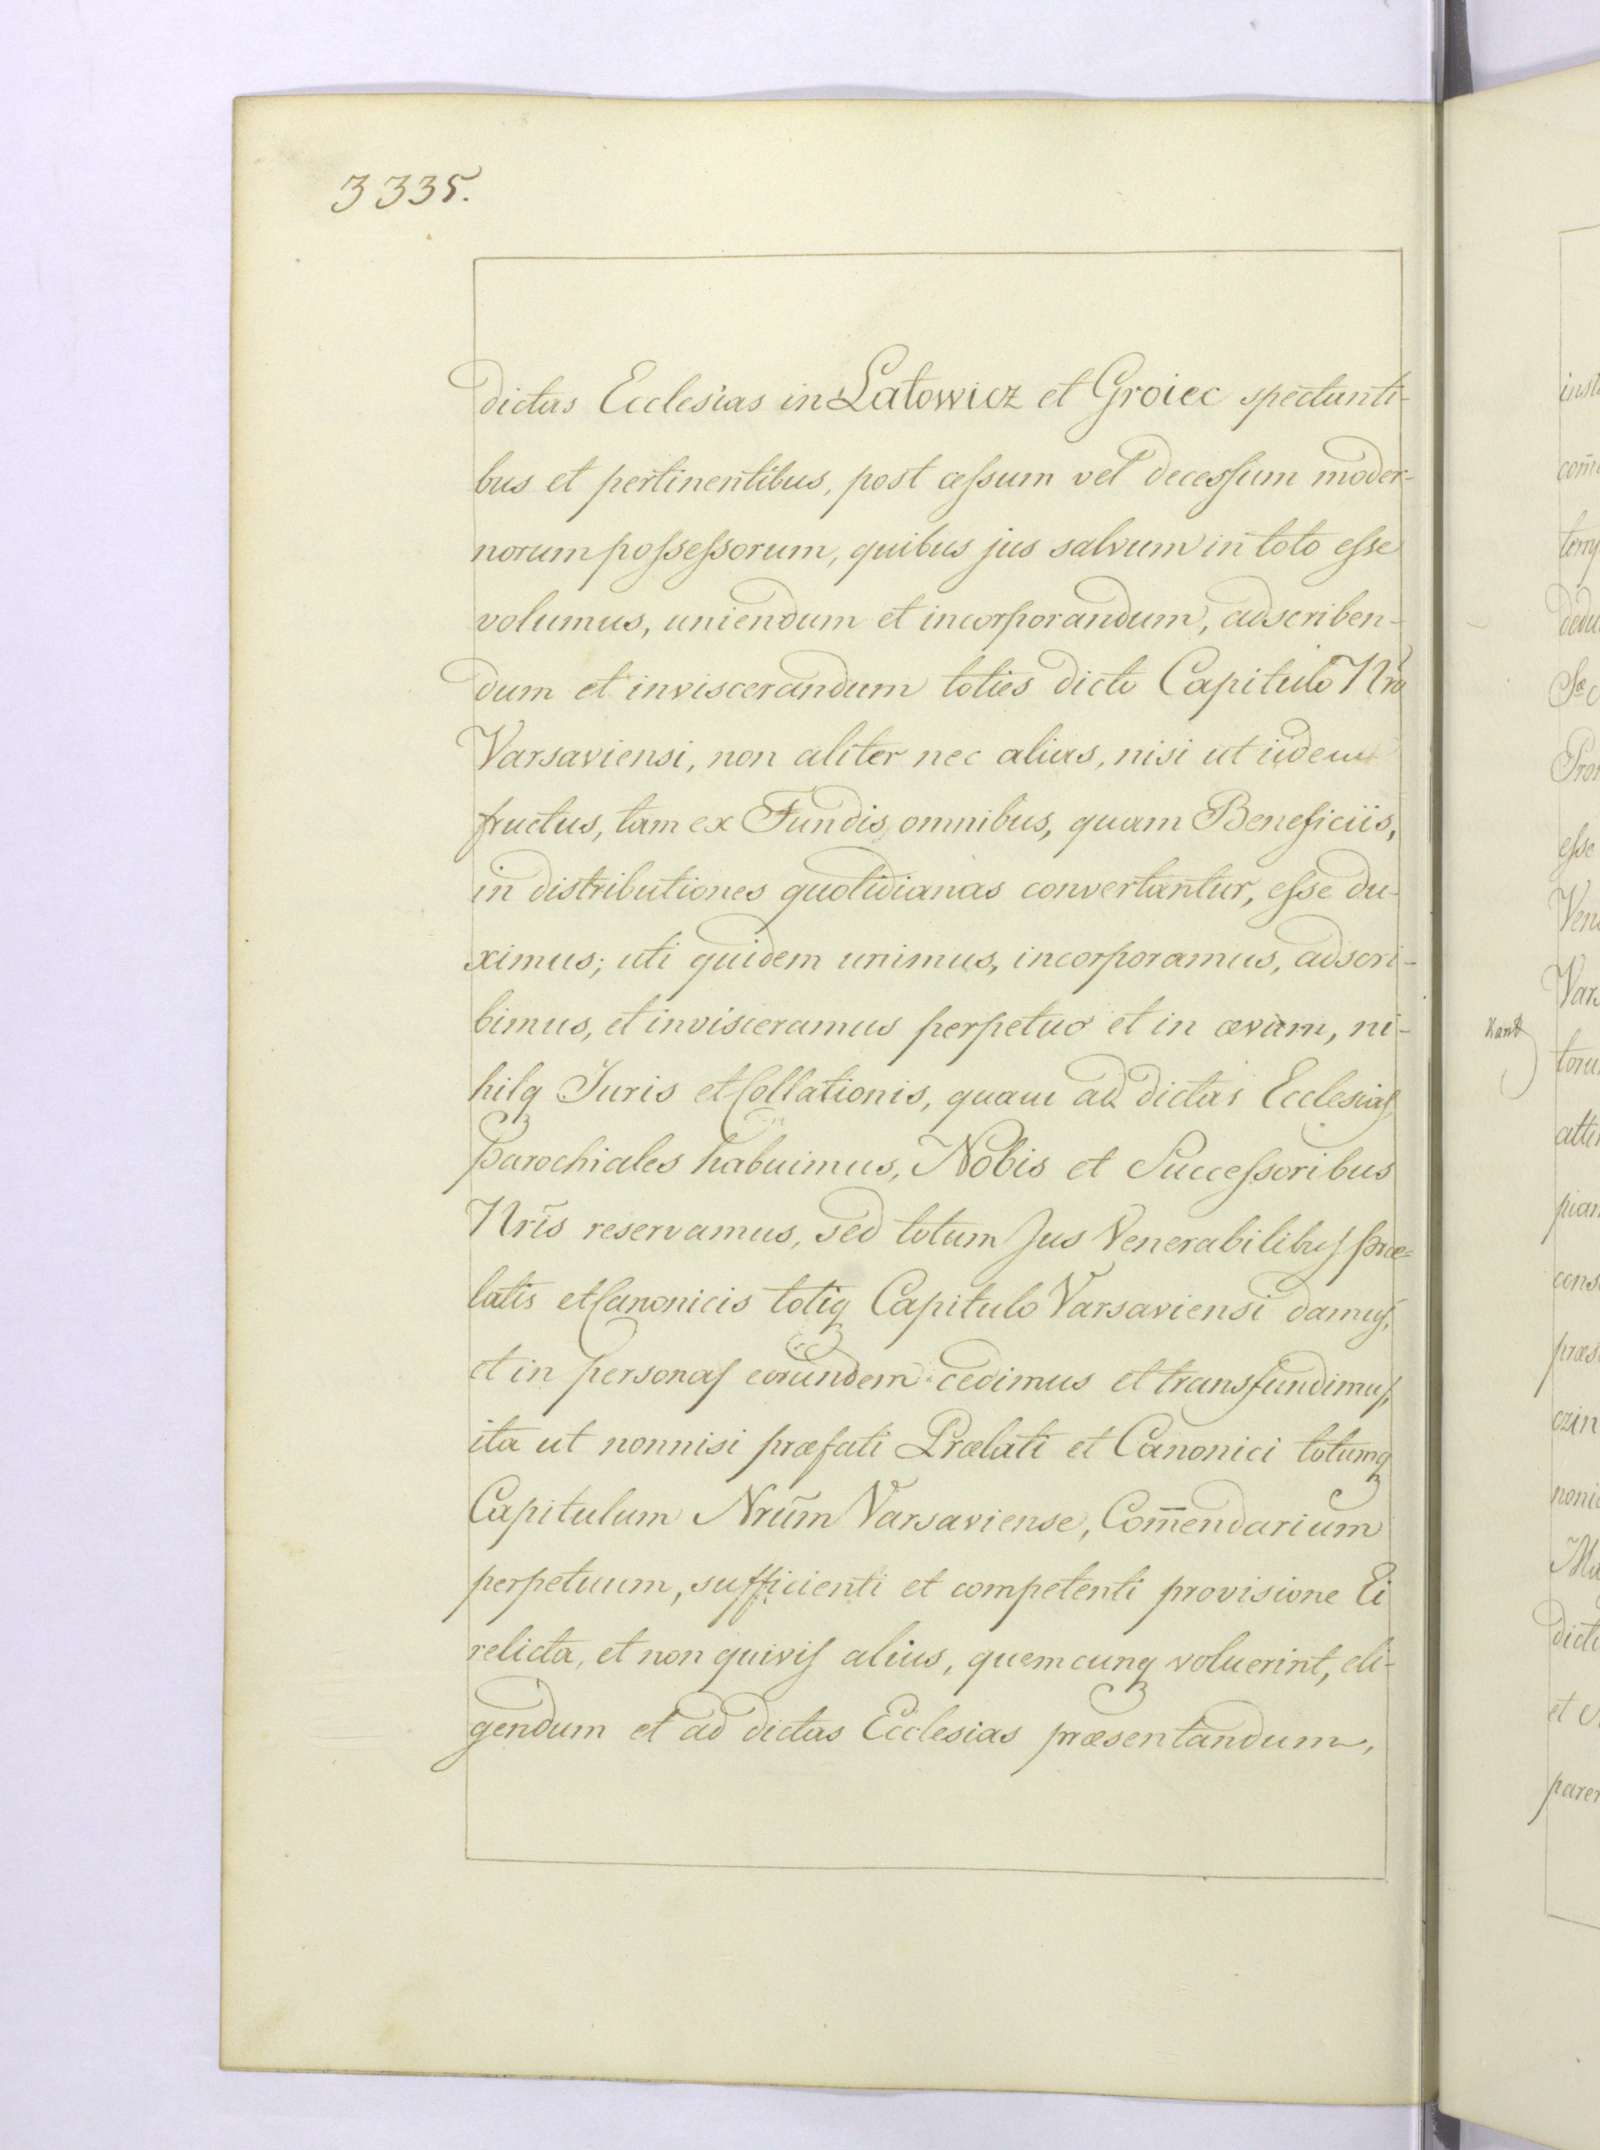 3335.
dictas Ecclesias in Latowicz et Groiec spectanti-
bus et pertinentibus, post cessum vel decessum moder-
norum possessorum, quibus jus salvum in toto esse
volumus, uniendum et incorporandum, adscriben-
dum et inviscerandum toties dicto Capitulo Nro
Varsaviensi, non aliter nec alias, nisi ut iidem
fructus, tam ex Fundis omnibus, quam Beneficiis,
in distributiones quotidianas convertantur, esse du-
ximus; uti quidem unimus, incorporamus, adscri-
bimus, et invisceramus perpetuo et in ævum, ni-
hilq Juris et Collationis, quam ad dictas Ecclesias
Parochiales habuimus, Nobis et Successoribus
Nrīs reservamus, sed totum Jus Venerabilibus Præ-
latis et Canonicis totiq Capitulo Varsaviensi damus,
et in personas eorundem cedimus et transfundimus,
ita ut nonnisi præfati Prælati et Canonici totumq
Capitulum Nrūm Varsaviense, Com̄endarium
perpetuum, sufficienti et competenti provisione Ei
relicta, et non quivis alius, quemcunq voluerint, eli-
gendum et ad dictas Ecclesias præsentandum,